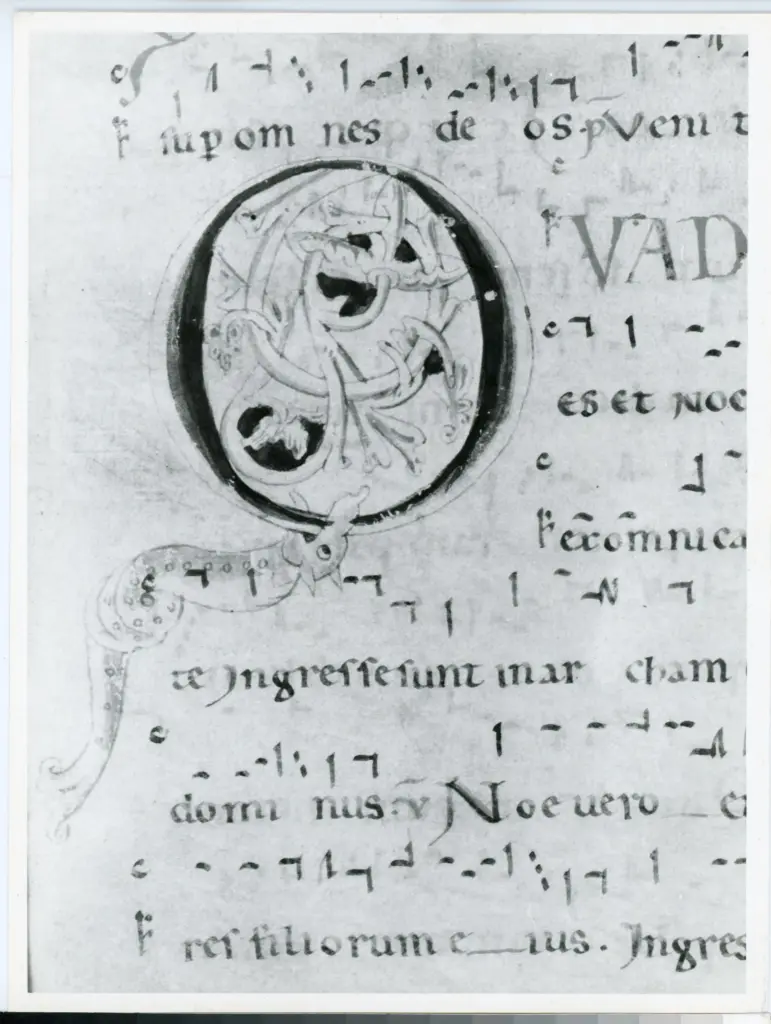 sup om nes de os pVeni t
QVAD
ES ET NOC
ex omnica
te Ingressesunt inar cham
domi nus. V Noe uero e
res filiorum e ius. Ingres